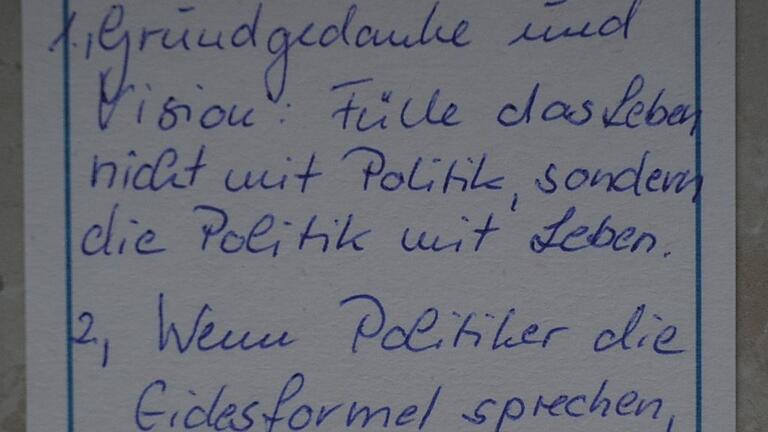 1., Grundgedanke und
Vision: Fülle das Leben
nicht mit Politik, sondern
die Politik mit Leben.
2, Wenn Politiker die
Eidesformel sprechen,